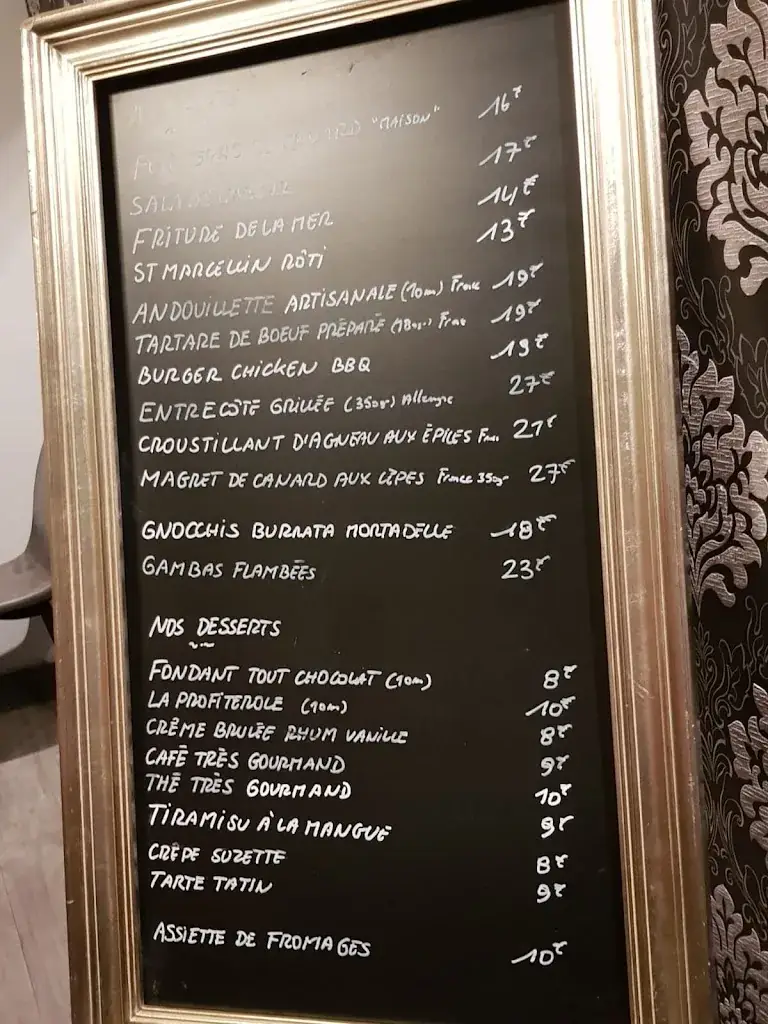 "MAISON" 16€
17€
FRITURE DE LA MER 14€
ST MARCELLIN RÔTI 13€
ANDOUILLETTE ARTISANALE (10m) France 19€
TARTARE DE BOEUF PRÉPARÉ (180gr) 19€
BURGER CHICKEN BBQ 19€
ENTRECÔTE GRILLÉE (350gr) Allemagne 27€
CROUSTILLANT D'AGNEAU AUX ÉPICES 27€
MAGRET DE CANARD AUX CÈPES France 350gr 27€
GNOCCHIS BURRATA MORTADELLE 18€
GAMBAS FLAMBÉES 23€
NOS DESSERTS
FONDANT TOUT CHOCOLAT (10m) 8€
LA PROFITEROLE (10m) 10€
CRÊME BRULÉE RHUM VANILLE 8€
CAFÉ TRÈS GOURMAND 9€
THÉ TRÈS GOURMAND 10€
TIRAMISU À LA MANGUE 9€
CRÊPE SUZETTE 8€
TARTE TATIN 9€
ASSIETTE DE FROMAGES 10€